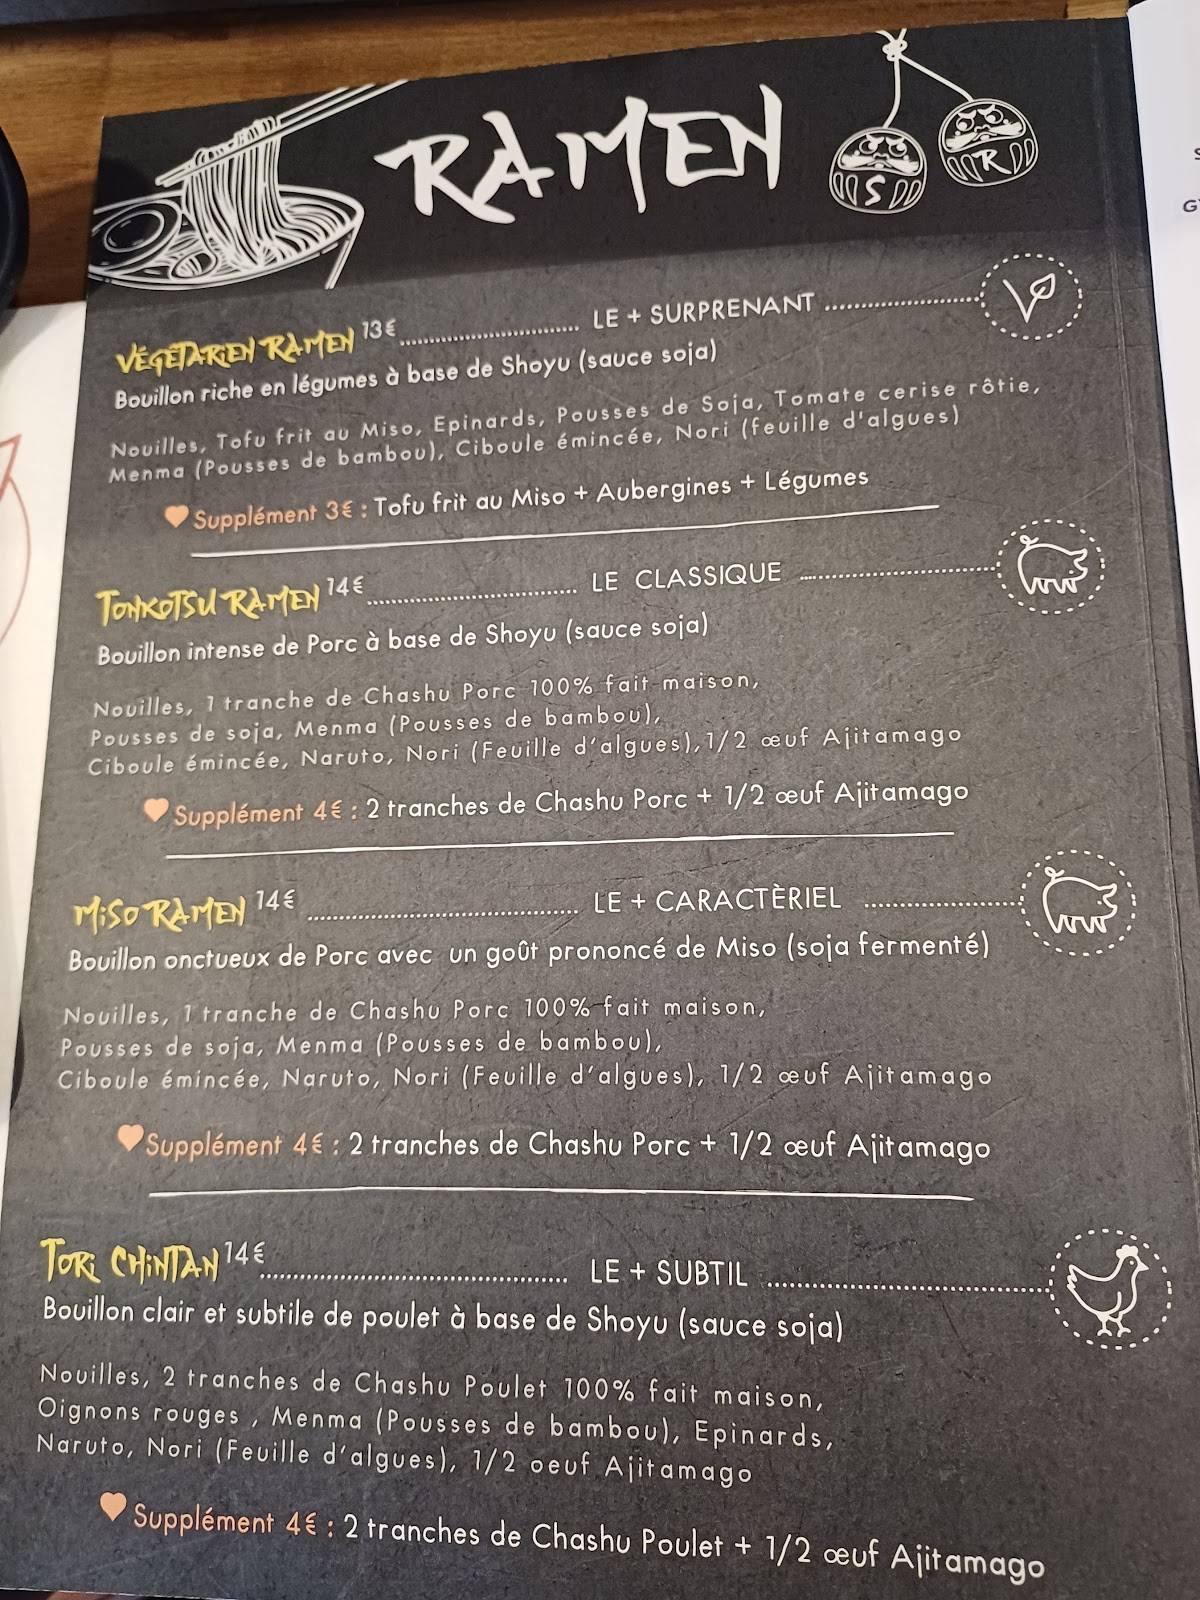 RAMEN
S
R
VÉGÉTARIEN RAMEN 13€ LE + SURPRENANT
Bouillon riche en légumes à base de Shoyu (sauce soja)
Nouilles, Tofu frit au Miso, Epinards, Pousses de Soja, Tomate cerise rôtie,
Menma (Pousses de bambou), Ciboule émincée, Nori (feuille d'algues)
Supplément 3€ : Tofu frit au Miso + Aubergines + Légumes
TONKOTSU RAMEN 14€ LE CLASSIQUE
Bouillon intense de Porc à base de Shoyu (sauce soja)
Nouilles, 1 tranche de Chashu Porc 100% fait maison,
Pousses de soja, Menma (Pousses de bambou),
Ciboule émincée, Naruto, Nori (Feuille d'algues),1/2 œuf Ajitamago
Supplément 4€ : 2 tranches de Chashu Porc + 1/2 œuf Ajitamago
MISO RAMEN 14€ LE + CARACTÈRIEL
Bouillon onctueux de Porc avec un goût prononcé de Miso (soja fermenté)
Nouilles, 1 tranche de Chashu Porc 100% fait maison,
Pousses de soja, Menma (Pousses de bambou),
Ciboule émincée, Naruto, Nori (Feuille d'algues), 1/2 œuf Ajitamago
Supplément 4€ : 2 tranches de Chashu Porc + 1/2 œuf Ajitamago
TORI CHINTAN 14€ LE + SUBTIL
Bouillon clair et subtile de poulet à base de Shoyu (sauce soja)
Nouilles, 2 tranches de Chashu Poulet 100% fait maison,
Oignons rouges , Menma (Pousses de bambou), Epinards,
Naruto, Nori (Feuille d'algues), 1/2 oeuf Ajitamago
Supplément 4€ : 2 tranches de Chashu Poulet + 1/2 œuf Ajitamago